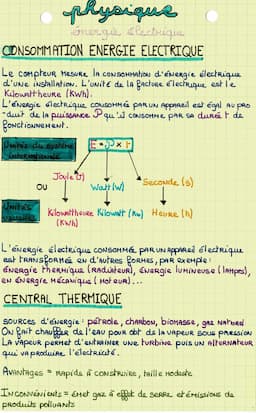 physique
énergie électrique
CONSOMMATION ENERGIE ELECTRIQUE
Le compteur mesure la consommation d'énergie électrique
d'une installation. L'unité de la facture électrique est le
Kilowattheure (KWh).
L'énergie électrique consommée par un appareil est égal au pro
-duit de la puissance P qu'il consomme par sa durée t de
fonctionnement.
Unités du système
international
E = P × t
Joule (J)
Watt (W)
Seconde (s)
OU
Unités
usuelles
Kilowattheure
(KWh)
Kilowatt (Kw)
Heure (h)
L'énergie électrique consommée par un appareil électrique
est transformée en d'autres formes, par exemple :
énergie thermique (radiateur), énergie lumineuse (lampes),
en énergie mécanique (moteur)...
CENTRAL THERMIQUE
sources d'énergie : pétrole, charbon, biomasse, gaz naturel
On fait chauffer de l'eau pour obt. de la vapeur sous pression
La vapeur permet d'entrainer une turbine puis un alternateur
qui va produire l'électricité.
Avantages = rapide à construire, taille modeste
Inconvénients = émet gaz à effet de serre et émissions de
produits polluants